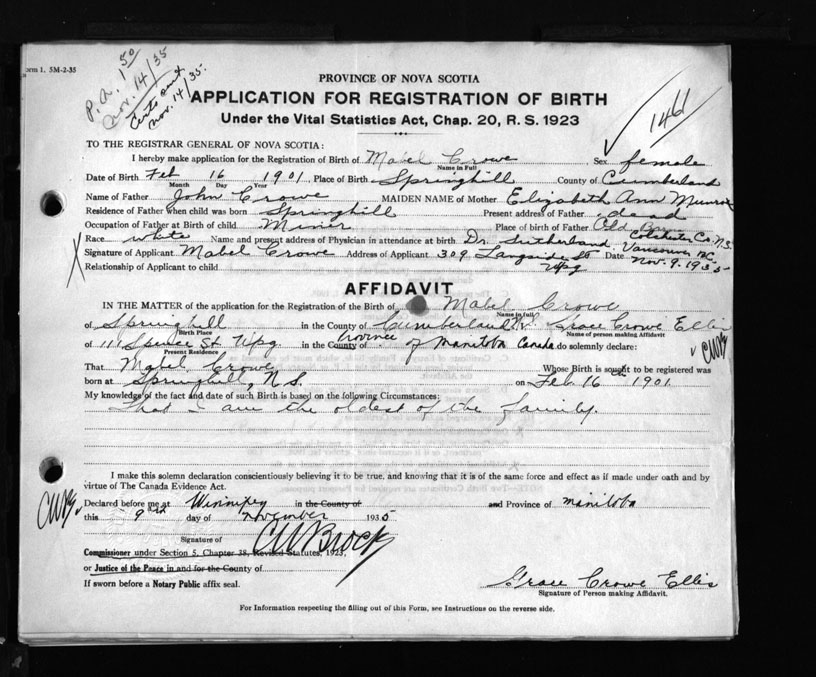 orm 1. 5M-2-35
P.A. 1 50
Nov. 14/35
Certs sent
Nov. 14/35.
PROVINCE OF NOVA SCOTIA
APPLICATION FOR REGISTRATION OF BIRTH
Under the Vital Statistics Act, Chap. 20, R. S. 1923
1461
TO THE REGISTRAR GENERAL OF NOVA SCOTIA:
I hereby make application for the Registration of Birth of Mabel Crowe Sex female
Name in Full
Date of Birth Feb 16 1901 Place of Birth Springhill County of Cumberland
Month Day Year
Name of Father John Crowe MAIDEN NAME of Mother Elizabeth Ann Munroe
Residence of Father when child was born Springhill Present address of Father dead
Occupation of Father at Birth of child Miner Place of Birth of Father Old Barns Colchester Co. N.S.
Race white Name and present address of Physician in attendance at birth Dr. Sutherland, Vancouver BC.
Signature of Applicant Mabel Crowe Address of Applicant 309 Langside St Wpg Date Nov. 9. 1935
Relationship of Applicant to child
AFFIDAVIT
IN THE MATTER of the application for the Registration of the Birth of Mabel Crowe
Name in full
of Springhill in the County of Cumberland I, Grace Crowe Ellis
Birth Place Name of person making Affidavit
of 111 Spence St Wpg in the County of Province of Manitoba Canada do solemnly declare:
Present Residence
CWB
That Mabel Crowe Whose Birth is sought to be registered was
born at Springhill, N.S. on Feb. 16th 1901.
My knowledge of the fact and date of such Birth is based on the following Circumstances:
That I am the oldest of the family.
I make this solemn declaration conscientiously believing it to be true, and knowing that it is of the same force and effect as if made under oath and by
virtue of The Canada Evidence Act.
CWB.
Declared before me at Winnipeg in the County of and Province of Manitoba
this 9th day of November 1935
Signature of CW Brock
Commissioner under Section 5, Chapter 38, Revised Statutes, 1923,
or Justice of the Peace in and for the County of
If sworn before a Notary Public affix seal.
Grace Crowe Ellis
Signature of Person making Affidavit.
For Information respecting the filling out of this Form, see Instructions on the reverse side.